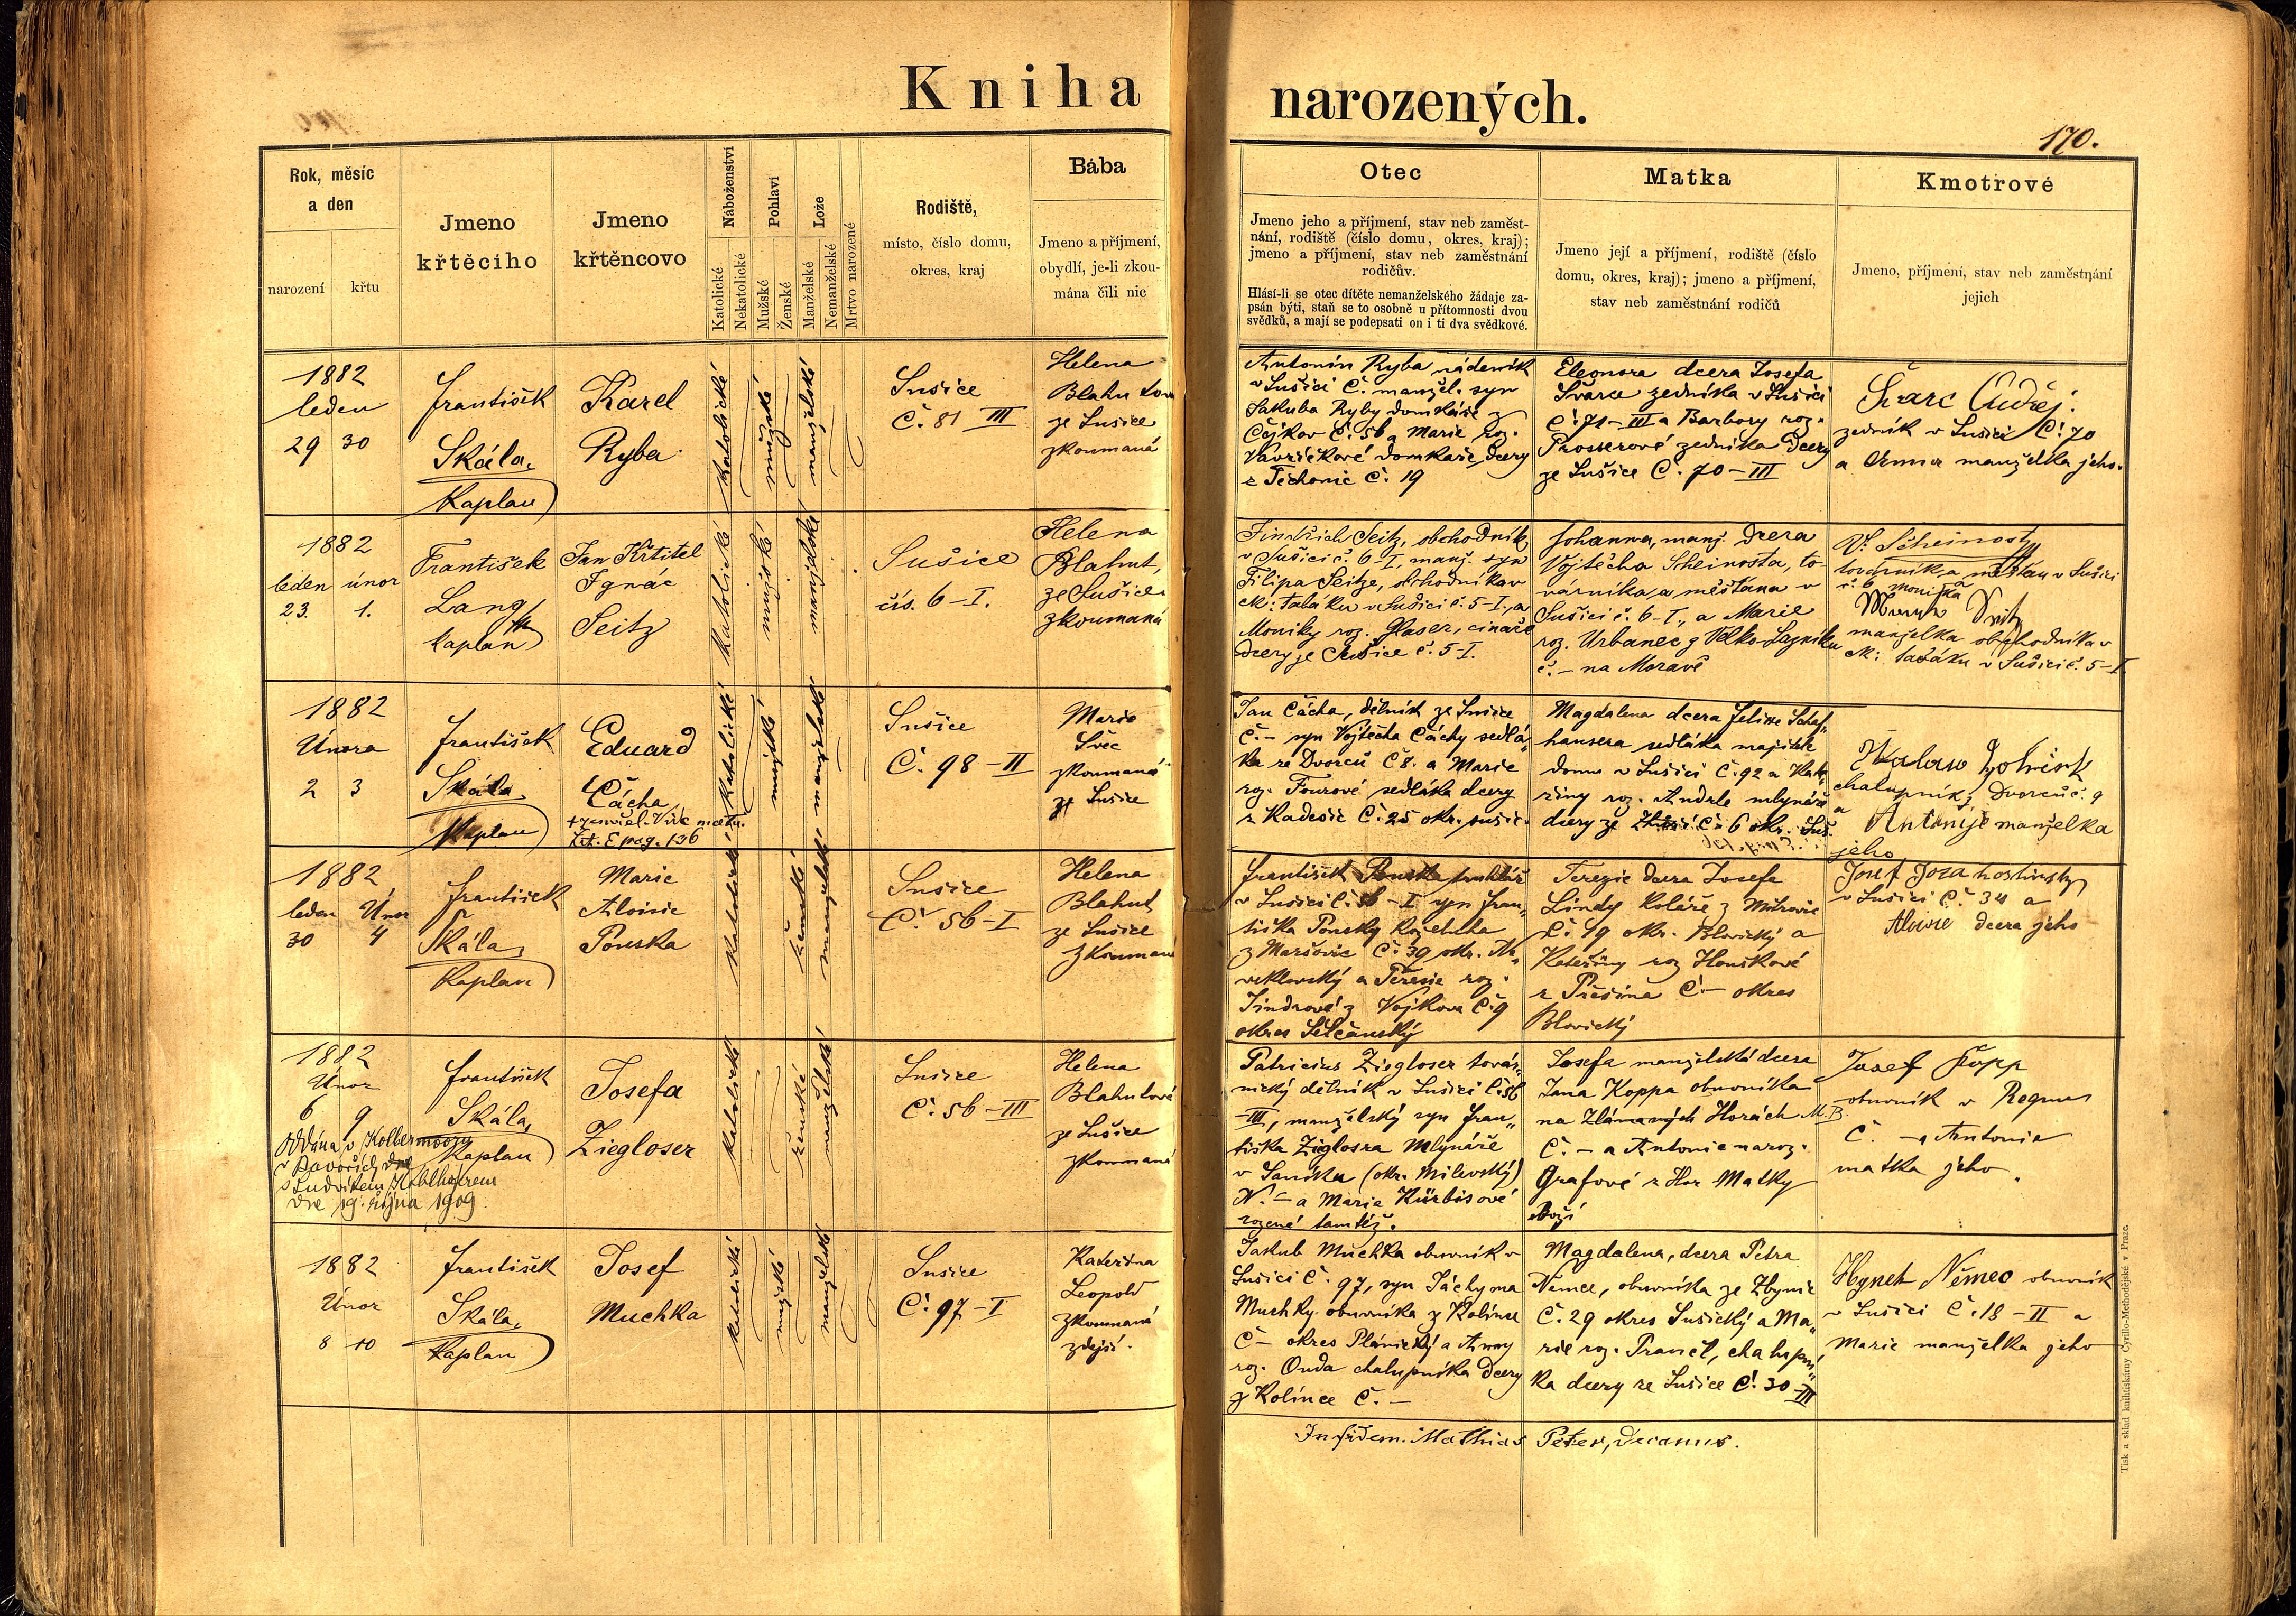 Kniha narozených.
170.
Rok, měsíc
a den
narození
křtu
Jmeno
křtěcího
Jmeno
křtěncovo
Náboženství
Katolické
Nekatolické
Pohlaví
Mužské
Ženské
Lože
Manželské
Nemanželské
Mrtvo narozené
Rodiště,
místo, číslo domu,
okres, kraj
Bába
Jmeno a příjmení,
obydlí, je-li zkou-
mána čili nic
Otec
Jmeno jeho a příjmení, stav neb zaměst-
nání, rodiště (číslo domu, okres, kraj);
jmeno a příjmení, stav neb zaměstnání
rodičův.
Hlásí-li se otec dítěte nemanželského žádaje za-
psán býti, staň se to osobně u přítomnosti dvou
svědků, a mají se podepsati on i ti dva svědkové.
Matka
Jmeno její a příjmení, rodiště (číslo
domu, okres, kraj); jmeno a příjmení,
stav neb zaměstnání rodičů
Kmotrové
Jmeno, příjmení, stav neb zaměstnání
jejich
1882
leden
29 30
František
Skála,
Kaplan
Karel
Ryba
katolické
mužské
manželské
Sušice
Č. 81 III
Helena
Blahutova
ze Sušice
zkoumaná
Antonín Ryba nádeník
v Sušici Č. manžel. syn
Jakuba Ryby domkáře z
Čejkov Č. 56 a Marie roz.
Vavřičkové domkaře dcery
z Těchonic Č. 19
Eleonora dcera Josefa
Švarce zedníka v Sušici
Č. 71-III a Barbory roz.
Prosserové zedníka dcery
ze Sušice Č. 70-III
Švarc Ondřej:
zedník v Sušici Č. 70
a Anna manželka jeho.
1882
leden únor
23. 1.
František
Lang
kaplan
Jan Křtitel
Ignác
Seitz
katolické
mužské
manželské
Sušice
čís. 6-I.
Helena
Blahut,
ze Sušice
zkoumaná
Jindřich Seitz, obchodník
v Sušici č. 6-I, manž. syn
Filipa Seitze, obchodníka v
ck: tabáku v Sušici č. 5-I., a
Moniky roz. Glaser, cínaře
dcery ze Sušice č. 5-I.
Johanna, manž. dcera
Vojtěcha Scheinosta, to-
várníka, a měšťana v
Sušici č. 6-I., a Marie
roz. Urbanec z Velko-Lazníku
č.- na Moravě
V. Scheinost
továrník, a měšťan v Sušici
č. 6 a
Monika Seitz
manželka obchodníka v
ck: tabáku v Sušici č. 5-I
1882
Února
2 3
František
Skála,
Kaplan
Eduard
Čácha
katolické
mužské
manželské
Sušice
Č. 98-II
Marie
Švec
zkoumaná
ze Sušice
Jan Čácha, dělník ze Sušice
Č.- syn Vojtěcha Čáchy sedlá-
ka ze Dvorců Č 8. a Marie
roz. Fourové sedláka dcery
z Kadešic Č. 25 okr. sušic.
Magdalena dcera Felixe Schaf-
hausera sedláka majitele
domu v Sušici Č. 92 a Kate-
řiny roz. Andrle mlynáře
dcery ze Č. 6 okr. Suš.
chalupník z Dvorců č. 9
a
Antonije manželka
jeho
1882
leden Únor
30 4
František
Skála,
Kaplan
Marie
Aloisie
Pouska
katolické
ženské
manželské
Sušice
Č. 56-I
Helena
Blahut
ze Sušice
zkoumaná
František Pouska truhlář
v Sušici Č. 56-I syn Fran-
tiška Pousky koželuha
z Maršovic Č. 39 okr. Ne-
veklovský a Terezie roz.
Jindrové z Vojkova Č. 9
okres Selčanský
Terezie dcera Josefa
Lindy koláře z Mítrovic
Č. 19 okr. Blovický a
Kateřiny roz Houškové
z Přešína Č.- okres
Blovický
Josef Joza hostinský
v Sušici Č. 34 a
Aloisie dcera jeho
1882
Únor
6 9
Oddána v Kolbermooru
v Bavořích dne
s Ludvíkem
dne 19. října 1909.
František
Skála,
Kaplan
Josefa
Ziegloser
katolické
ženské
manželské
Sušice
Č. 56-III
Helena
Blahutová
ze Sušice
zkoumaná
Patricius Ziegloser továr-
nický dělník v Sušici Č. 56
-III, manželský syn Fran-
tiška Zieglosra mlynáře
v Saníka (okr. Milevský)
N.- a Marie Kürbisové
rozené tamtéž.
Josefa manželská dcera
Jana Koppa obuvníka
na Zlámaných Horách M. B.
Č. - a Antonie naroz.
Grafové z Hor Matky
Boží
Josef Kopp
obuvník v
Č. - a Antonie
matka jeho.
1882
Únor
8 10
František
Skála,
Kaplan
Josef
Muchka
katolické
mužské
manželské
Sušice
Č. 97-I
Kateřina
Leopold
zkoumaná
zdejší.
Jakub Muchka obuvník v
Sušici Č. 97, syn Jáchyma
Muchky obuvníka z Kolince
Č- okres Plánický a Anny
roz. Onda chalupníka dcery
z Kolince Č. -
Magdalena, dcera Petra
Němce, obuvníka ze Zbynic
Č. 29 okres Sušický a Ma-
rie roz. Prančl, chalupní-
ka dcery ze Sušice Č. 30-III
Hynek Němec obuvník
v Sušici Č. 18-II a
Marie manželka jeho
In fidem. Mathias Peter, decanus.
Tisk a sklad knihtiskárny Cyrillo-Methodějské v Praze.